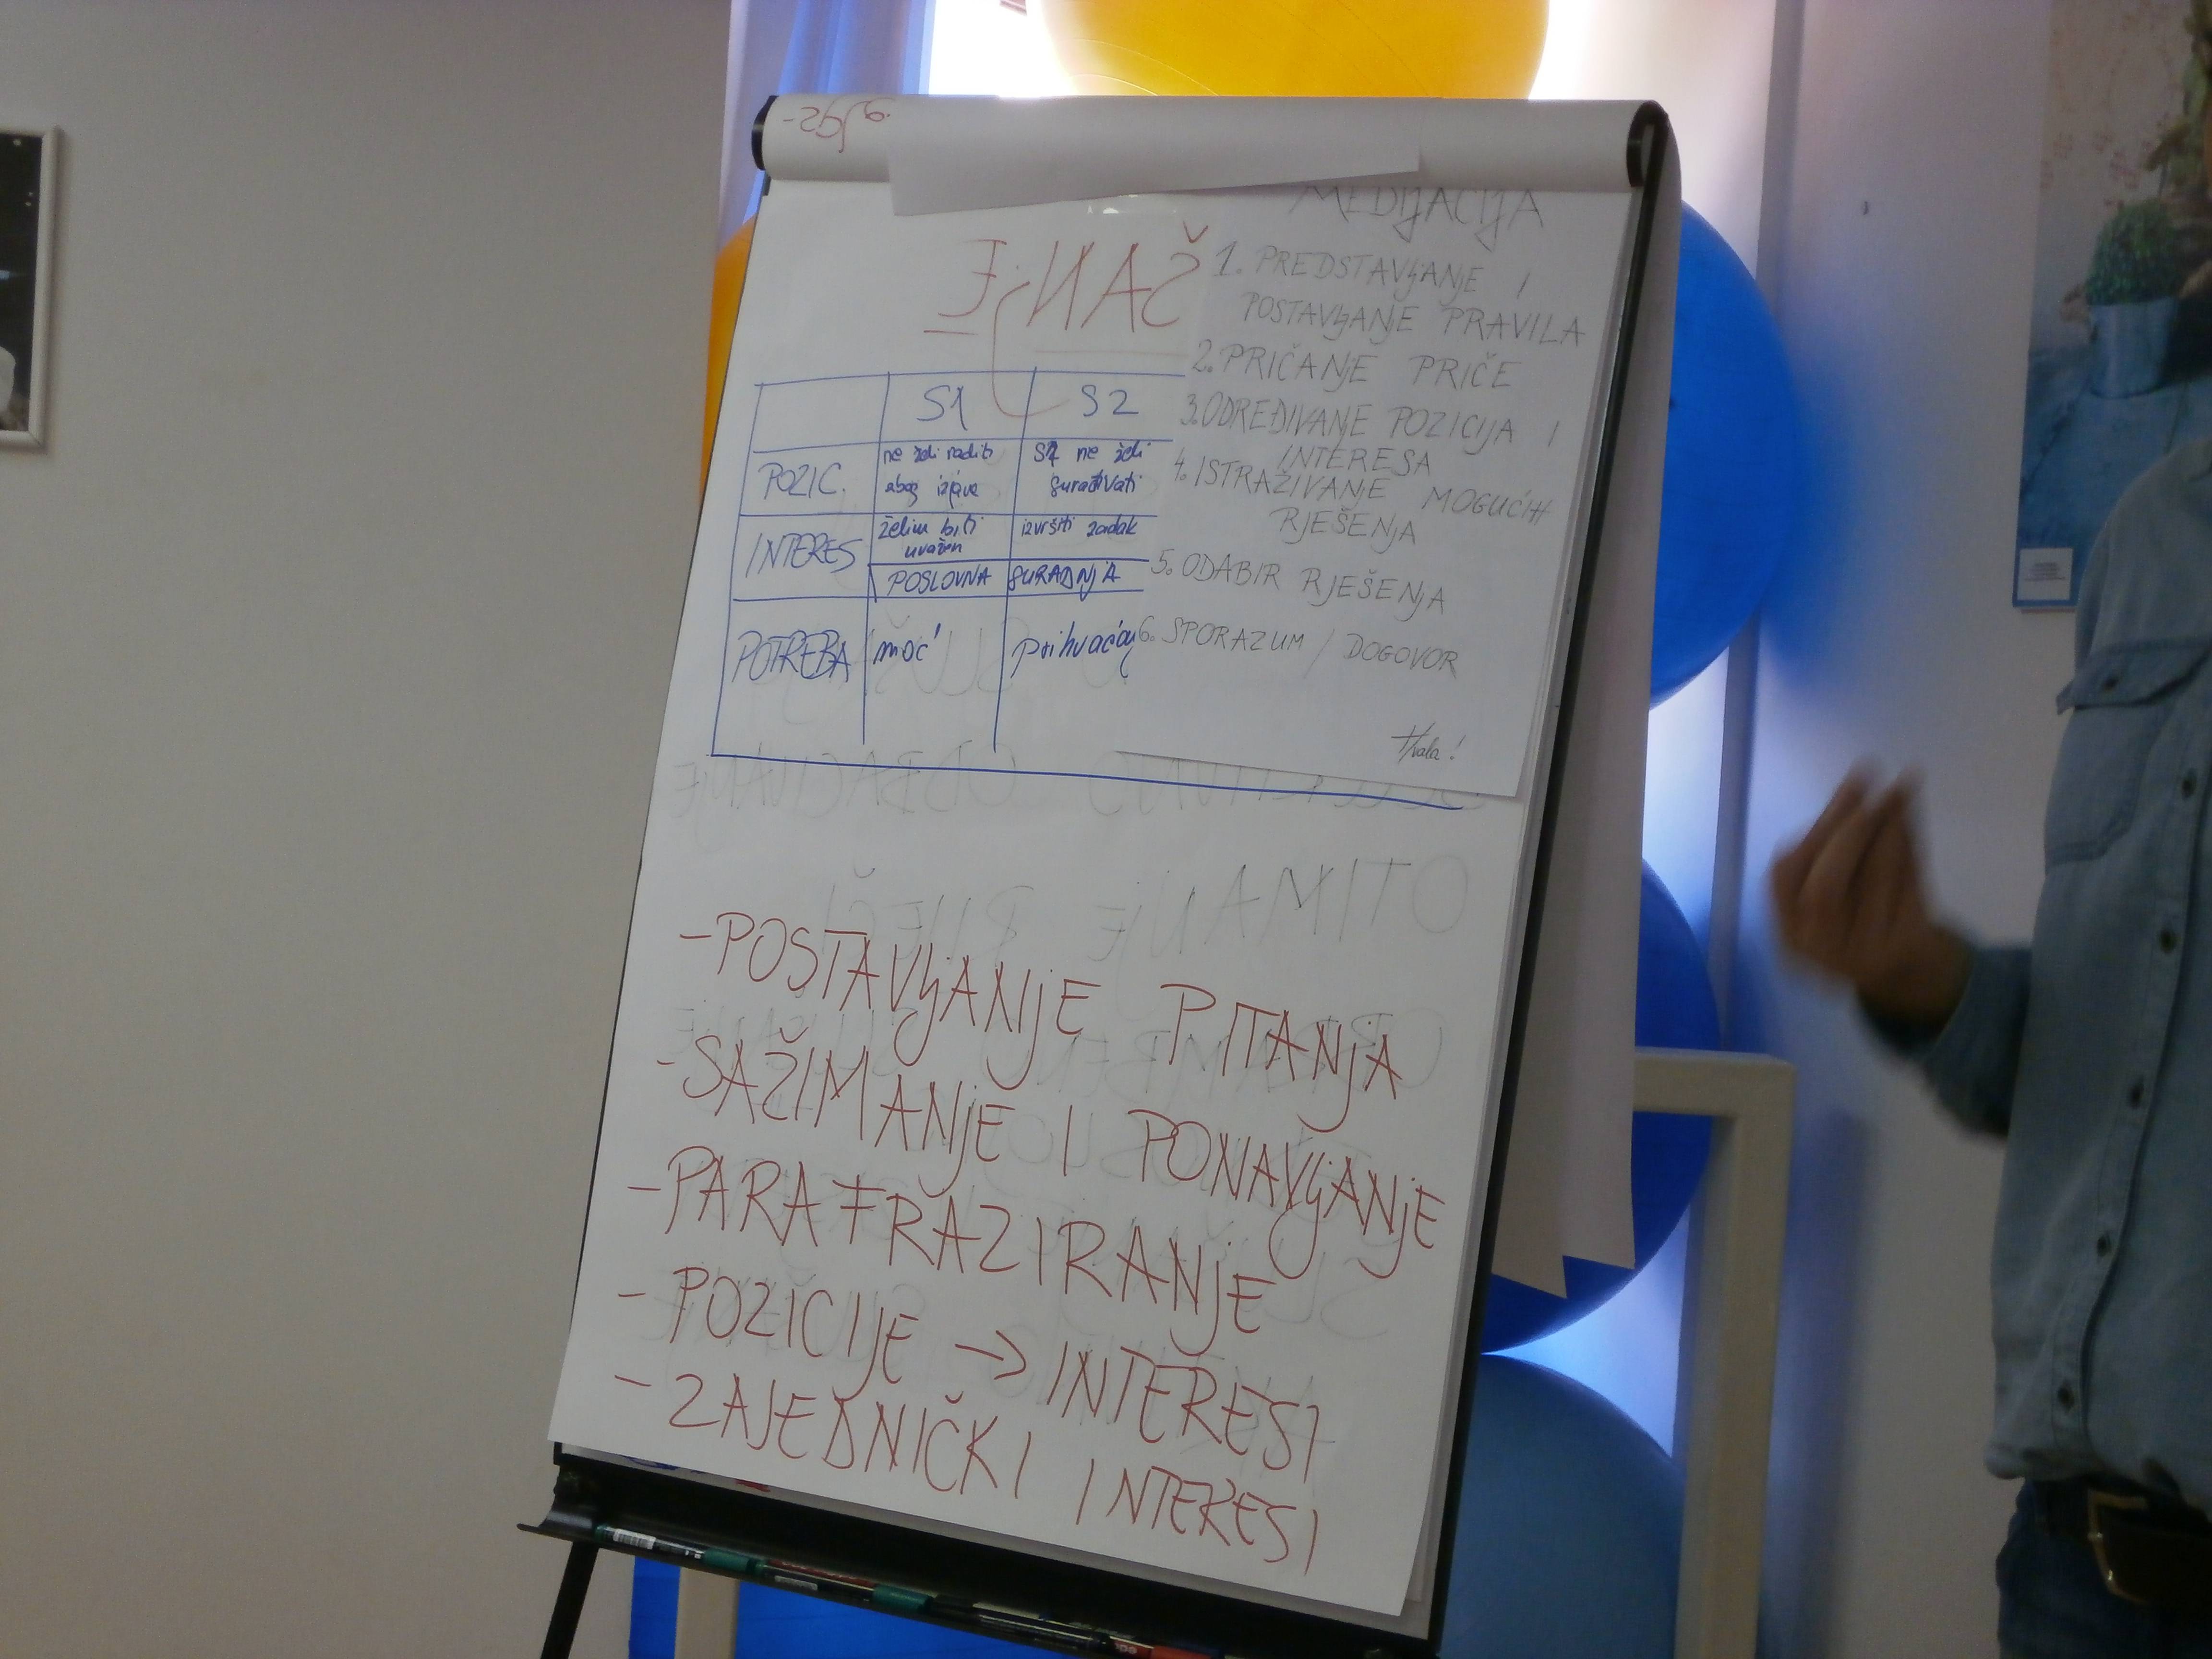 MEDIJACIJA
1. PREDSTAVLJANJE I
POSTAVLJANJE PRAVILA
2. PRIČANJE PRIČE
3. ODREĐIVANJE POZICIJA I
INTERESA
4. ISTRAŽIVANJE MOGUĆIH
RJEŠENJA
5. ODABIR RJEŠENJA
6. SPORAZUM / DOGOVOR
Hvala!
ŠANJE
S1 S2
POZIC. ne želi raditi S1 ne želi
zbog izjave surađivati
INTERES želim biti izvršiti zadak
uvažen
POSLOVNA SURADNJA
POTREBA moć prihvaćanj
ODBACIVANJE
OTIMANJE RIJEČI
- POSTAVLJANJE PITANJA
- SAŽIMANJE I PONAVLJANJE
- PARAFRAZIRANJE
- POZICIJE → INTERESI
- ZAJEDNIČKI INTERESI